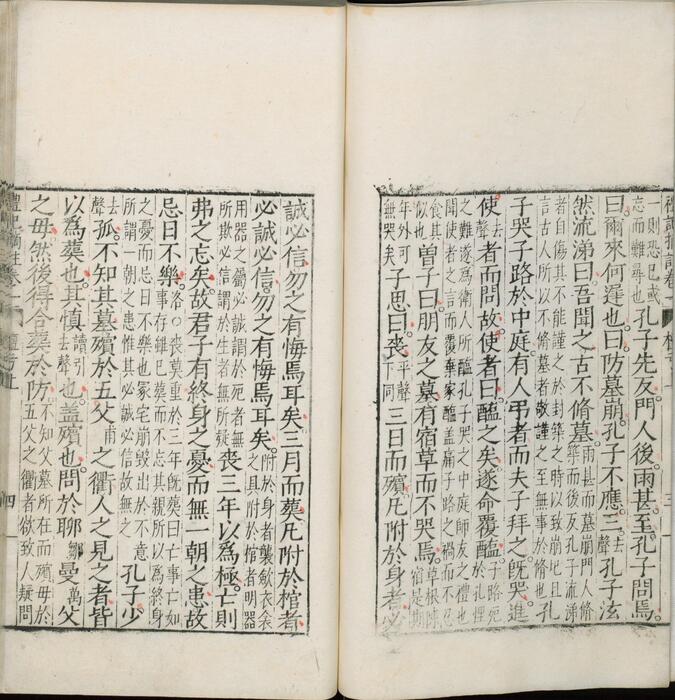 一則恐已或忘而難尋也孔子先反門人後雨甚至孔子問焉
曰爾來何遲也曰防墓崩孔子不應三去聲孔子泫
然流涕曰吾聞之古不脩墓雨甚而墓崩門人脩築而後反孔子流涕
者自傷其不能謹之於封築之時以致崩圮且言古人所以不脩墓者敬謹之至無事於脩也孔
子哭子路於中庭有人弔者而夫子拜之旣哭進
使去聲者而問故使者曰醢之矣遂命覆醢子路死於孔悝
之難遂爲衛人所醢孔子哭之中庭師友之禮也聞使者之言而覆棄家醢蓋痛子路之禍而不忍
食其似也曾子曰朋友之墓有宿草而不哭焉草根陳宿是期
年外可無哭矣子思曰喪平聲下同三日而殯凡附於身者必
誠必信勿之有悔焉耳矣三月而葬凡附於棺者
必誠必信勿之有悔焉耳矣附於身者襲歛衣衾之具附於棺者明器
用器之屬必誠謂於死者無所欺必信謂於生者無所疑喪三年以爲極亡則
弗之忘矣故君子有終身之憂而無一朝之患故
忌日不樂洛○喪莫重於三年旣葬曰亡事亡如事存雖已葬而不忘其親所以爲終身
之憂而忌日不樂也冢宅崩毀出於不意所謂一朝之患惟其必誠必信故無之孔子少
去聲孤不知其墓殯於五父甫之衢人之見之者皆
以爲葬也其愼讀引去聲也蓋殯也問於聊鄒曼萬父
之母然後得合葬於防不知父墓所在而殯母於五父之衢者欲致人疑問